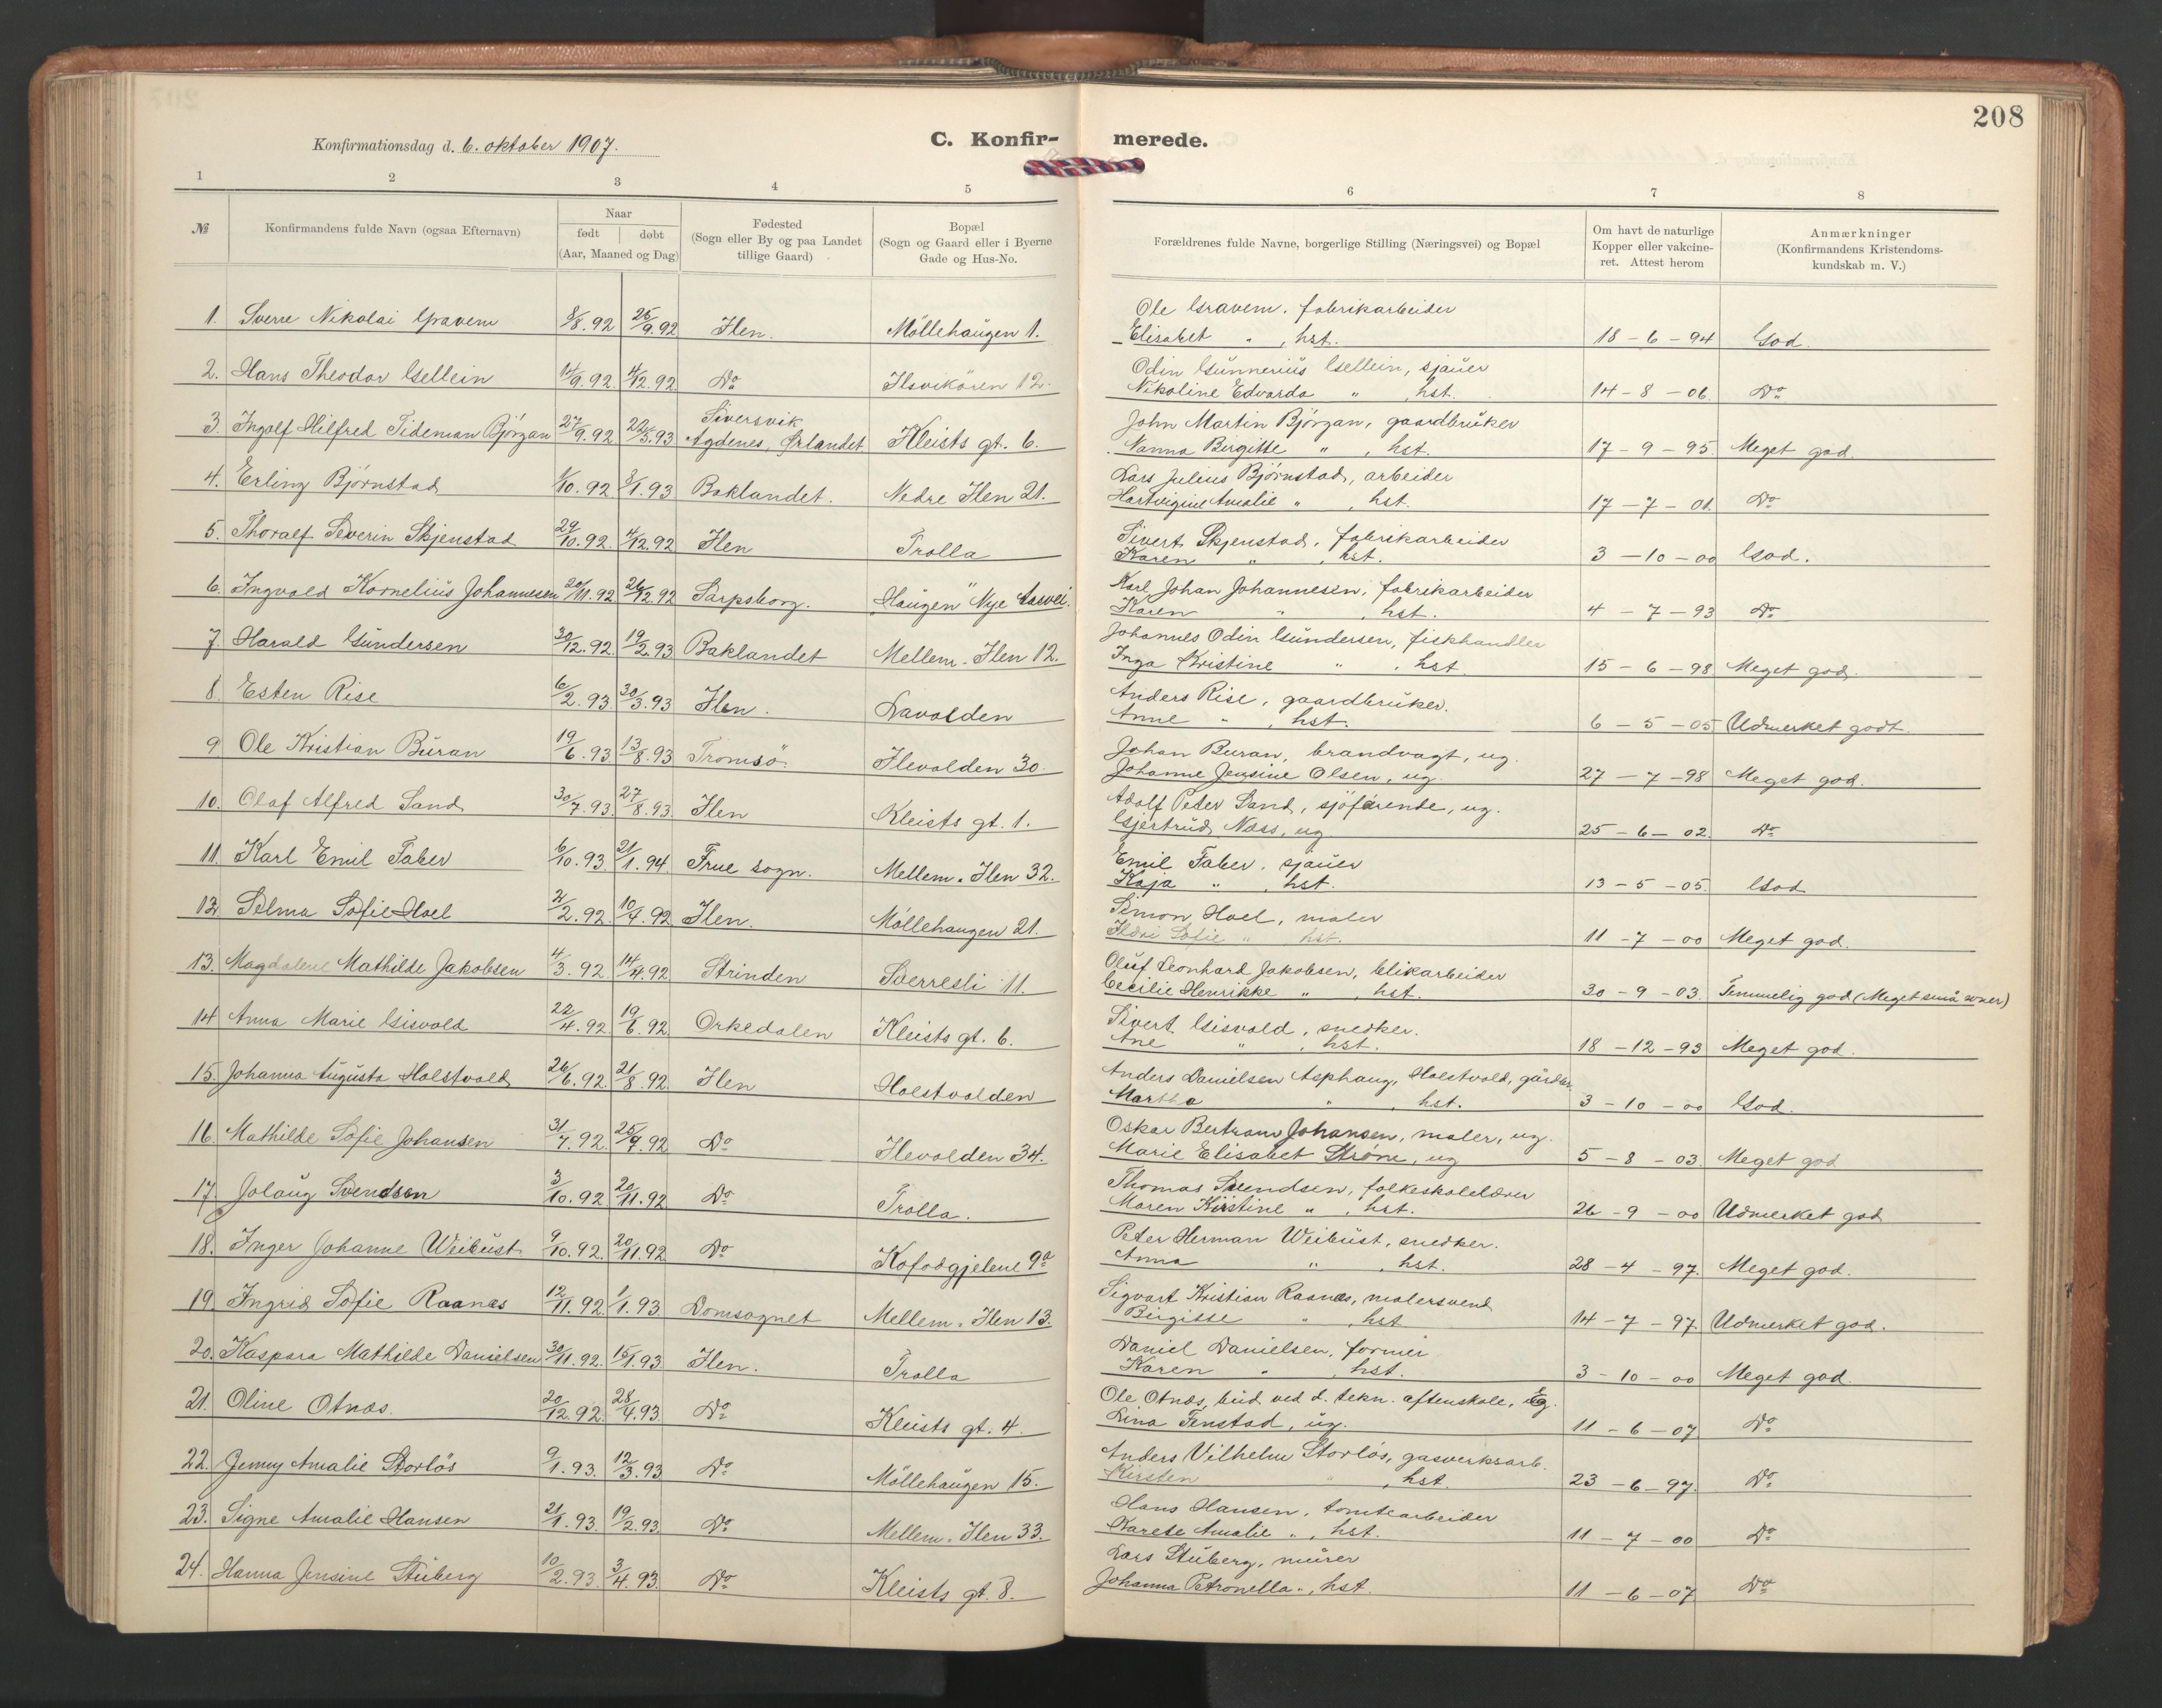 208
Konfirmationsdag d. 6. oktober 1907.
C. Konfir- merede.
1 2 3 4 5 6 7 8
№ Konfirmandens fulde Navn (ogsaa Efternavn)
Naar
født døbt
(Aar, Maaned og Dag)
Fødested
(Sogn eller By og paa Landet
tillige Gaard)
Bopæl
(Sogn og Gaard eller i Byerne
Gade og Hus-No.
Forældrenes fulde Navne, borgerlige Stilling (Næringsvei) og Bopæl
Om havt de naturlige
Kopper eller vakcine-
ret. Attest herom
Anmærkninger
(Konfirmandens Kristendoms-
kundskab m. V.)
1. Sverre Nikolai Gravem 8/8.92 25/9.92 Ilen. Möllehaugen 1.
Ole Gravem, fabrikarbeider
Elisabet " , hst. 18-6-94 God.
2. Hans Theodor Gellein 14/9.92 4/12.92 Do Ilsvikören 12.
Odin Gunnerius Gellein, sjauer
Nikoline Edvarda " , hst. 14-8-06. Do
3. Ingolf Hilfred Tideman Björgan 27/9.92 22/5.93 Siversvik
Agdenes, Ørlandet Kleists gt. 6.
John Martin Björgan, gaardbruker
Nanna Birgitte " , hst. 17-9-95. Meget god.
4. Erling Björnstad 1/10.92 8/1.93 Baklandet. Nedre Ilen 21.
Lars Julius Björnstad, arbeider
Hartvigine Amalie " , hst. 17-7-01. Do
5. Thoralf Severin Skjenstad 29/10.92. 4/12.92 Ilen Trolla
Sivert Skjenstad, fabrikarbeider
Karen " , hst. 3-10-00 God.
6. Ingvald Kornelius Johannesen 20/11.92 26/12.92 Sarpsborg. "Haugen" Nye Aasvei.
Karl Johan Johannesen, fabrikarbeider
Karen " , hst. 4-7-93 Do
7. Harald Gundersen 30/12.92. 19/2.93 Baklandet Mellem-Ilen 12.
Johannes Odin Gundersen, fiskhandler
Inga Kristine " , hst. 15-6-98 Meget god.
8. Esten Rise 6/2.93 30/3.93 Ilen. Davolden
Anders Rise, gaardbruker.
Anne " , hst. 6-5-05 Udmerket godt.
9 Ole Kristian Buran 19/6.93 13/8.93 Tromsö. Ilevolden 30.
Johan Buran, brandvagt, ug.
Johanne Jensine Olsen, ug. 27-7-98 Meget god.
10. Olaf Alfred Sand 30/7.93 27/8.93 Ilen Kleists gt. 1.
Adolf Peter Sand, sjöfarende, ug.
Gjertrud Næss, ug 25-6-02. Do
11. Karl Emil Faber 6/10.93 21/1.94 Frue sogn. Mellem-Ilen 32.
Emil Faber, sjauer
Kaja " , hst. 13-5-05. God
12. Selma Sofie Hoel 2/2.92. 10/4.92 Ilen. Möllehaugen 21.
Simon Hoel, maler
Sofie " hst. 11-7-00 Meget god.
13. Magdalene Mathilde Jakobsen 4/3.92 14/4.92 Strinden Sverresli 11.
Oluf Leonhard Jakobsen, blikarbeider
Cecilie Henrikke " , hst. 30-9-03. Temmelig god (Meget små evner)
14 Anna Marie Gisvold 22/4.92 19/6.92 Orkedalen Kleists gt. 6.
Sivert Gisvold, snedker.
Ane " , hst. 18-12-93 Meget god.
15. Johanna Augusta Holstvold 26/6.92 21/8.92 Ilen Holstvolden
Anders Danielsen Asphaug, Holstvold, gårdbr.
Martha " , hst. 3-10-00 God.
16. Mathilde Sofie Johansen 31/7.92. 25/9.92 Do Ilevolden 34.
Oskar Bertram Johansen, maler, ug.
Marie Elisabet Strøm, ug 5-8-03. Meget god
17. Jolaug Svendsen 3/10.92 20/11.92 Do Trolla.
Thomas Svendsen, folkeskolelærer
Maren Kirstine " , hst. 26-9-00 Udmerket god
18. Inger Johanne Weibust 9/10.92. 20/11.92 Do Kofodgjelene 9a
Peter Herman Weibust, snedker.
Anna " , hst. 28-4-97. Meget god.
19. Ingrid Sofie Raanes 12/11.92 1/1.93 Domsognet Mellem-Ilen 13.
Sigvart Kristian Raanes, malersvend
Birgitte " , hst. 14-7-97. Udmerket god.
20. Kaspara Mathilde Danielsen 30/11.92. 15/1.93 Ilen. Trolla
Daniel Danielsen, former
Karen " , hst. 3-10-00 Meget god.
21. Oline Otnæs. 20/12.92. 28/4.93 Do Kleists gt. 4.
Ole Otnæs, bud ved d. tekn. aftenskole, ug.
Lina Fenstad, ug. 11-6-07 Do
22. Jenny Amalie Storlös 9/1.93. 12/3.93 Do Möllehaugen 15.
Anders Vilhelm Storlös, gasverksarb.
Kirsten " , hst. 23-6-97. Do
23. Signe Amalie Hansen 21/1.93. 19/2.93. Do Mellem-Ilen 33.
Hans Hansen, tomtearbeider
Karete Amalie " , hst. 11-7-00 Do
24. Hanna Jensine Stuberg 10/2.93. 3/4.93. Do Kleists gt. 8.
Lars Stuberg, murer
Johanna Petronella " , hst. 11-6-07 Do